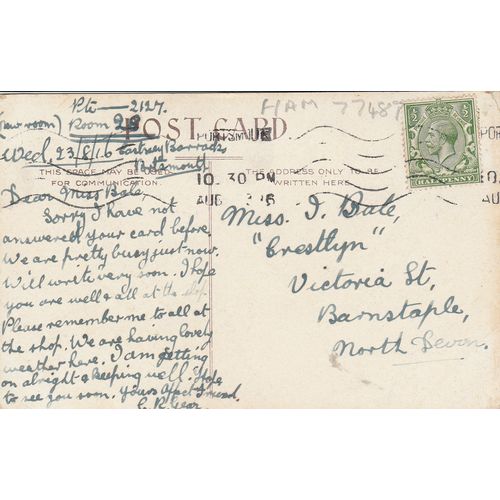 Pte — 2127.
(new room) Room 28
HAM 7748
POST CARD.
Wed. 23/8/16 Eastney Barracks
Portsmouth
THIS SPACE MAY BE USED
FOR COMMUNICATION.
THE ADDRESS ONLY TO BE
WRITTEN HERE.
PORTSMOUTH
10.30 PM
AUG 16
HALFPENNY
Dear Miss Bale,
Sorry I have not
answered your card before
We are pretty busy just now.
Will write very soon. I hope
you are well & all at the shop.
Please remember me to all at
the shop. We are having lovely
weather here. I am getting
on alright & keeping well. Hope
to see you soon. Yours Affect. Friend.
C. R. Gear
Miss. I. Bale,
"Crestlyn"
Victoria St,
Barnstaple,
North Devon.